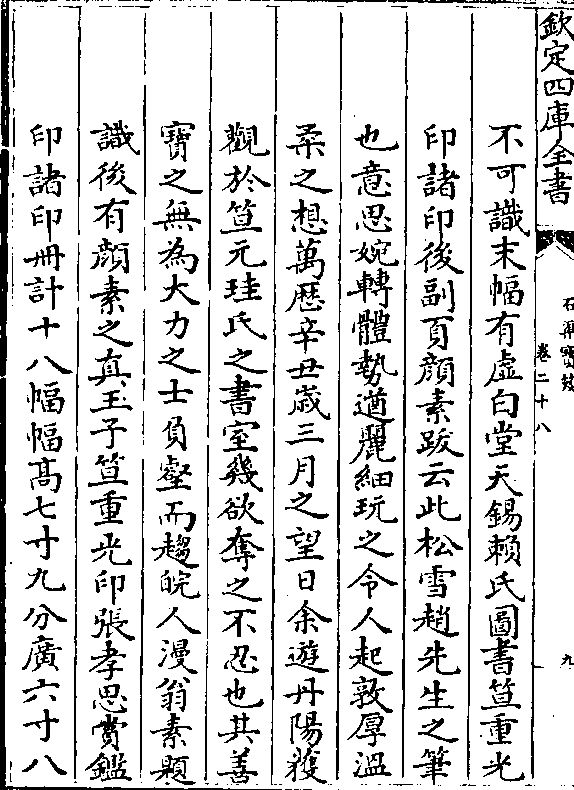 欽定四庫全書
石渠寶笈
卷二十八
九
不可識末幅有虛白堂天錫賴氏圖書笪重光
印諸印後副頁顔素跋云此松雪趙先生之筆
也意思婉轉體勢遒麗細玩之令人起敦厚溫
柔之想萬歷辛丑歳三月之望日余遊丹陽獲
觀於笪元珪氏之書室幾欲奪之不忍也其善
寳之無為大力之士負壑而趨皖人漫翁素題
識後有顔素之真玉子笪重光印張孝思賞鑑
印諸印冊計十八幅幅髙七寸九分廣六寸八